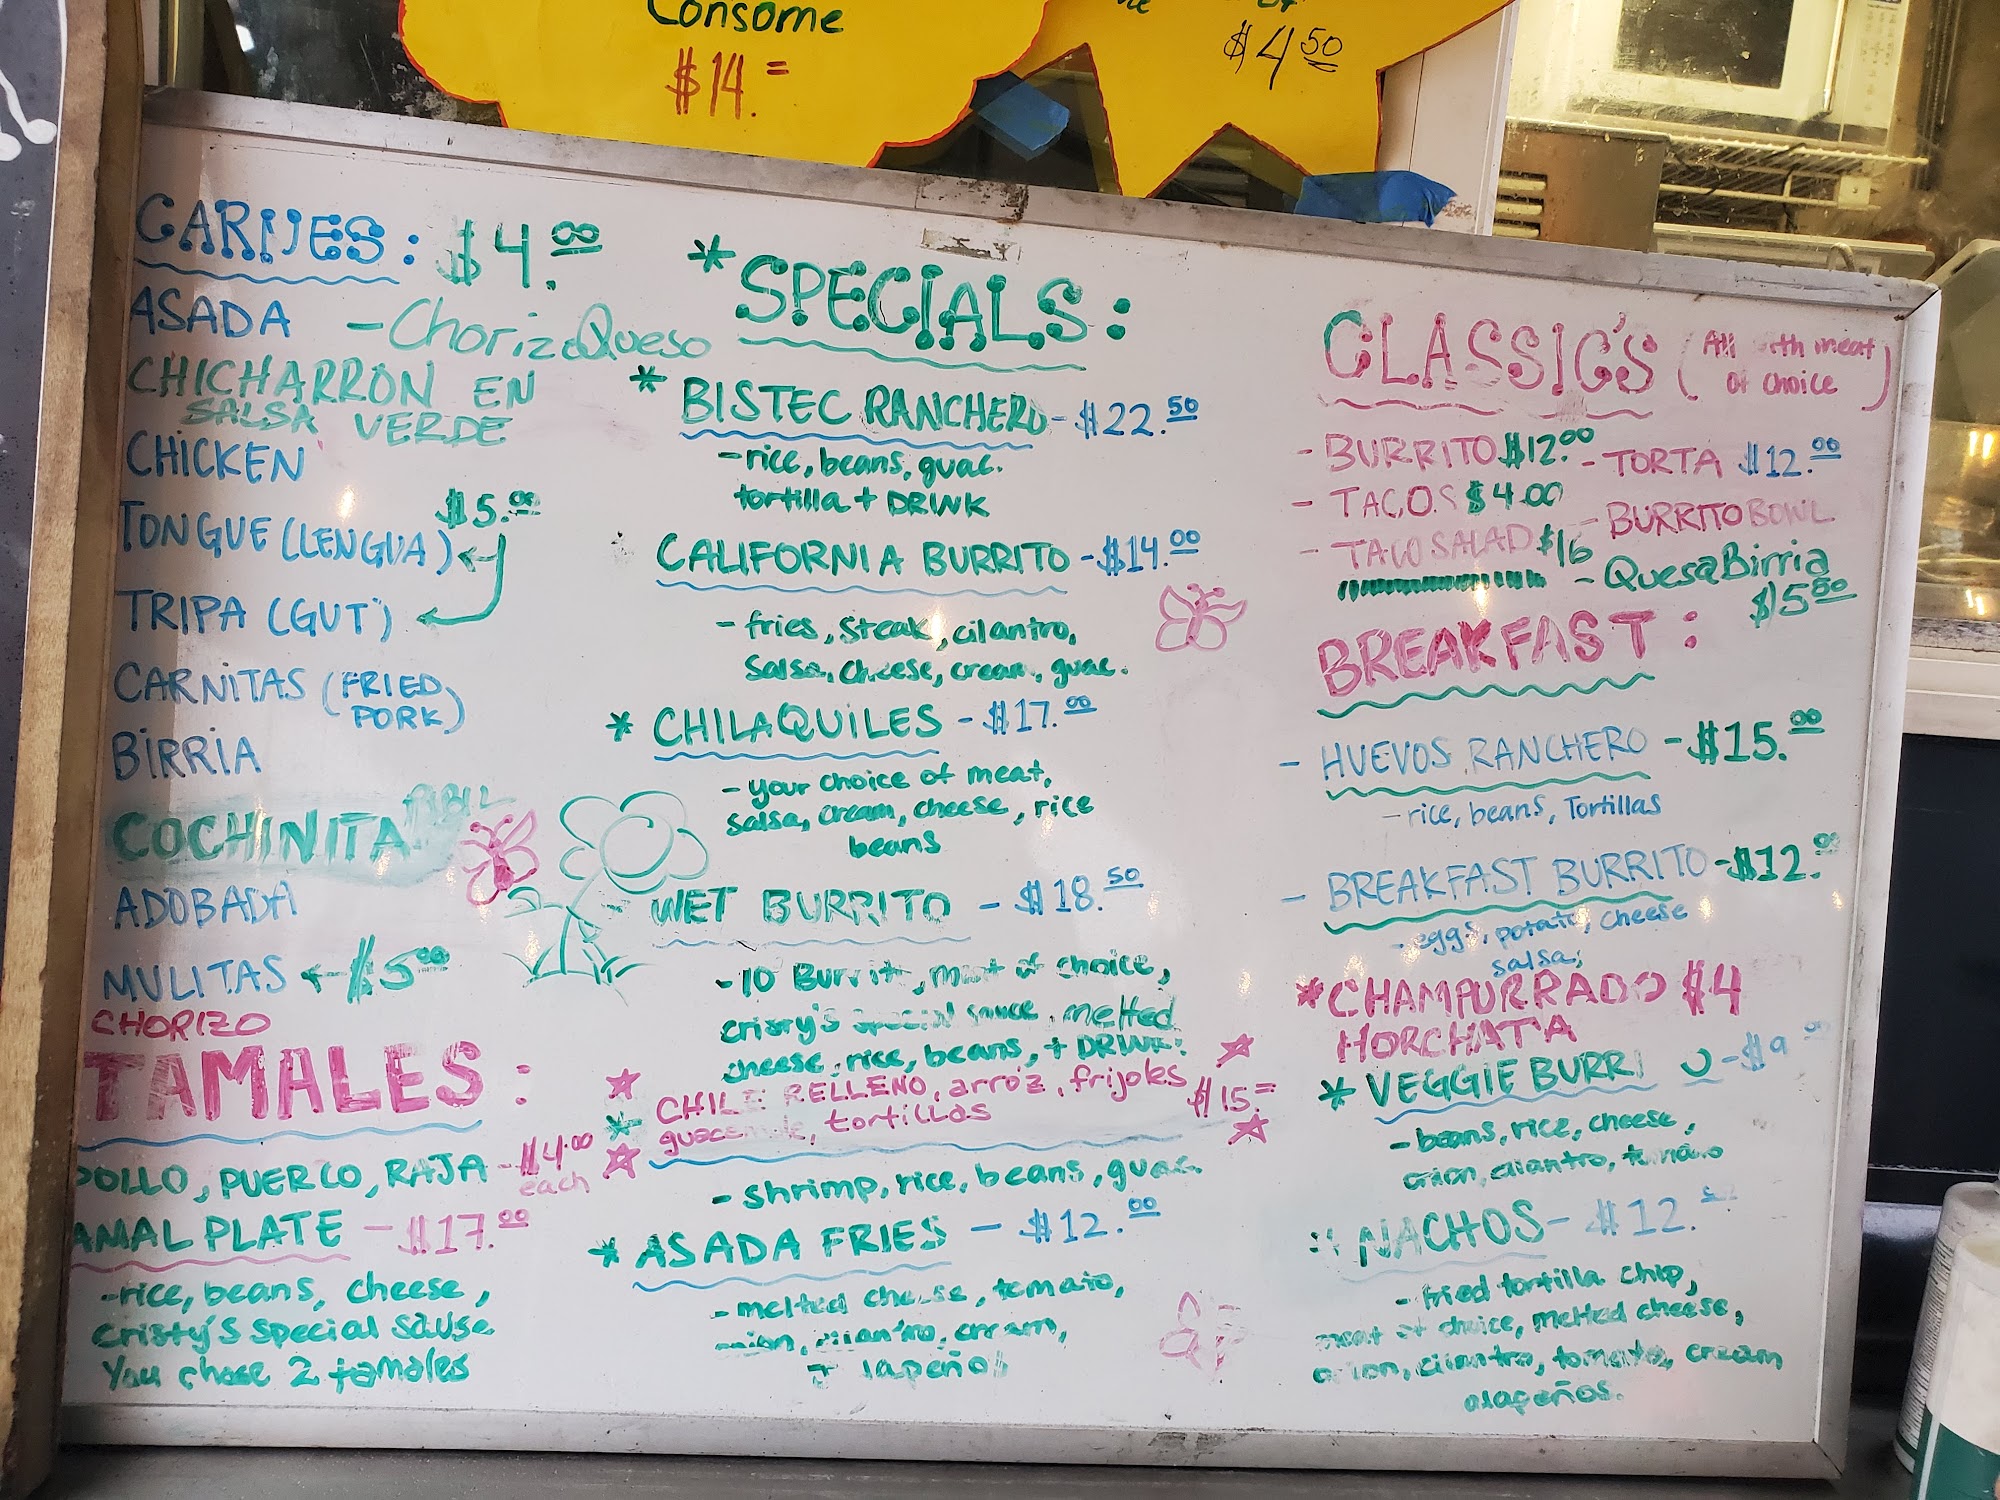 Consome
$14.=
$4.50
CARNES: $4.00
ASADA
- ChorizoQueso
CHICHARRON EN
SALSA VERDE
CHICKEN
$5.00
TONGUE (LENGUA)
TRIPA (GUT)
CARNITAS (FRIED
PORK)
BIRRIA
COCHINITA PIBIL
ADOBADA
MULITAS $5.00
CHORIZO
TAMALES:
POLLO, PUERCO, RAJA - $4.00
each
AMAL PLATE - $17.00
- rice, beans, cheese,
Cristy's special sause
You chose 2 tamales
*SPECIALS:
* BISTEC RANCHERO - $22.50
- rice, beans, guac.
tortilla + DRINK
CALIFORNIA BURRITO - $14.00
- fries, steak, cilantro,
Salsa, cheese, cream, guac.
* CHILAQUILES - $17.00
- your choice of meat,
salsa, cream, cheese, rice
beans
- WET BURRITO - $18.50
- 10 Burrit, meat of choice,
cristy's special sauce, melted
cheese, rice, beans, + DRINK!
* CHILE RELLENO, arroz, frijoles $15.=
guacamole, tortillas
- shrimp, rice, beans, guac.
* ASADA FRIES - $12.00
- melted cheese, tomato,
onion, cilantro, cream,
+ Jalapeño
CLASSIC'S (All with meat
of choice)
- BURRITO $12.00 - TORTA $12.00
- TACOS $4.00 - BURRITO BOWL
- TACO SALAD $16
- QuesaBirria
$5.50
BREAKFAST:
- HUEVOS RANCHERO - $15.00
- rice, beans, Tortillas
- BREAKFAST BURRITO - $12.00
- eggs, potato, cheese
salsa,
*CHAMPURRADO $4
HORCHATA
* VEGGIE BURRI O - $9
- beans, rice, cheese,
onion, cilantro, tomato
* NACHOS - $12.
- fried tortilla chip,
meat of choice, melted cheese,
onion, cilantro, tomato, cream
alapeños.